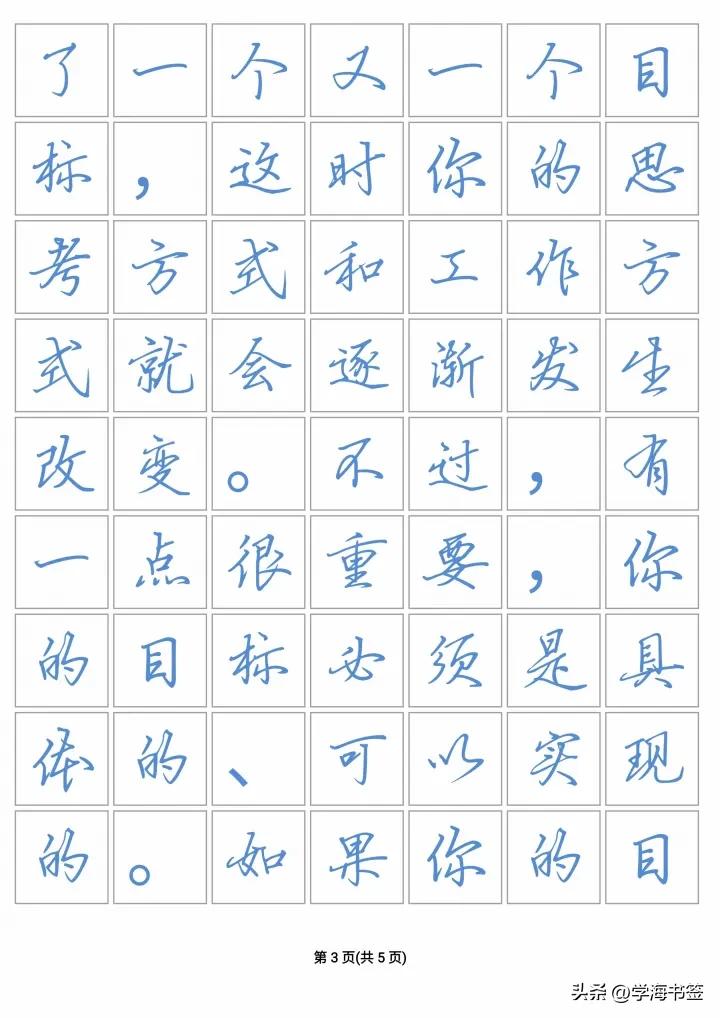 了一个又一个目
标，这时你的思
考方式和工作方
式就会逐渐发生
改变。不过，有
一点很重要，你
的目标必须是具
体的、可以实现
的。如果你的目
第 3 页(共 5 页)
头条 @学海书签